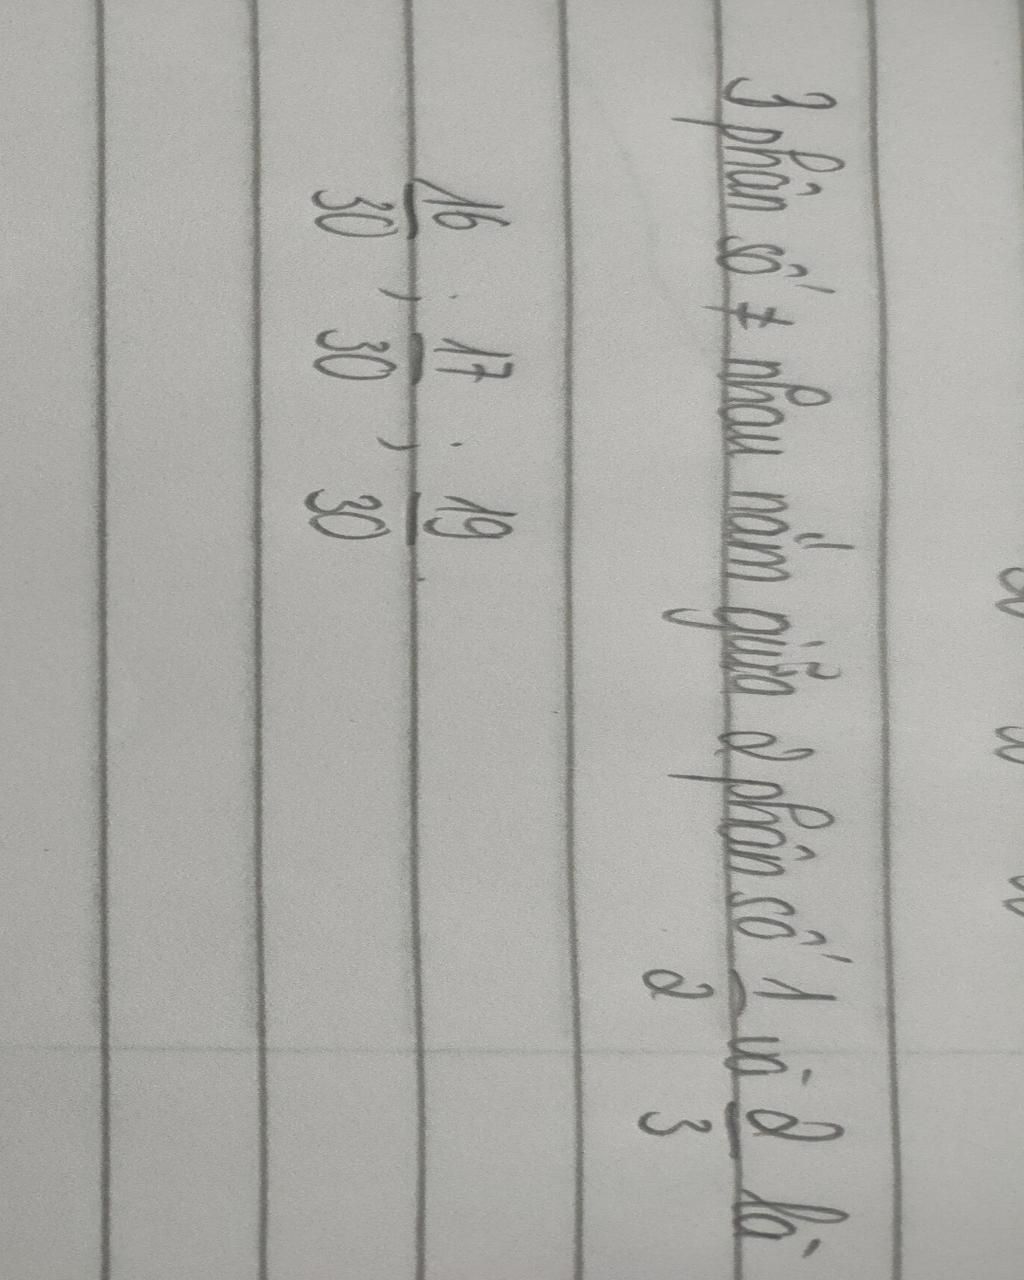 3 phân số ≠ nhau nằm giữa 2 phân số 1/2 và 2/3 là
16/30 ; 17/30 ; 19/30 .